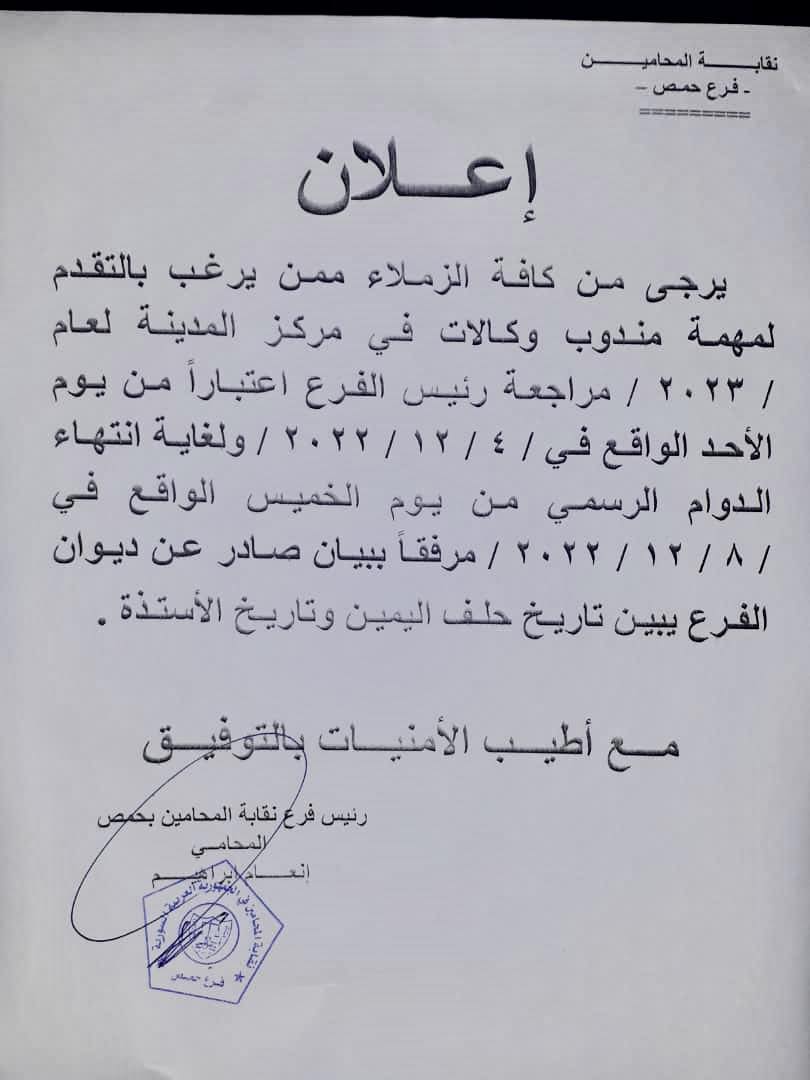 نقابة المحامين
- فرع حمص -
=========
إعلان
يرجى من كافة الزملاء ممن يرغب بالتقدم
لمهمة مندوب وكالات في مركز المدينة لعام
/ ٢٠٢٣ / مراجعة رئيس الفرع اعتباراً من يوم
الأحد الواقع في / ٤ / ١٢ / ٢٠٢٢ / ولغاية انتهاء
الدوام الرسمي من يوم الخميس الواقع في
/ ٨ / ١٢ / ٢٠٢٢ / مرفقاً ببيان صادر عن ديوان
الفرع يبين تاريخ حلف اليمين وتاريخ الأستذة .
مع أطيب الأمنيات بالتوفيق
رئيس فرع نقابة المحامين بحمص
المحامي
إنعام ابراهيم
نقابة المحامين في الجمهورية العربية السورية
فرع حمص